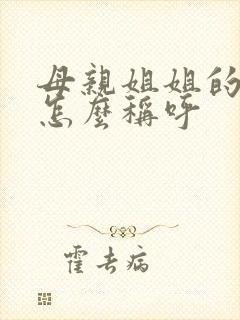 母親姐姐的
怎麼稱呼
霍去病